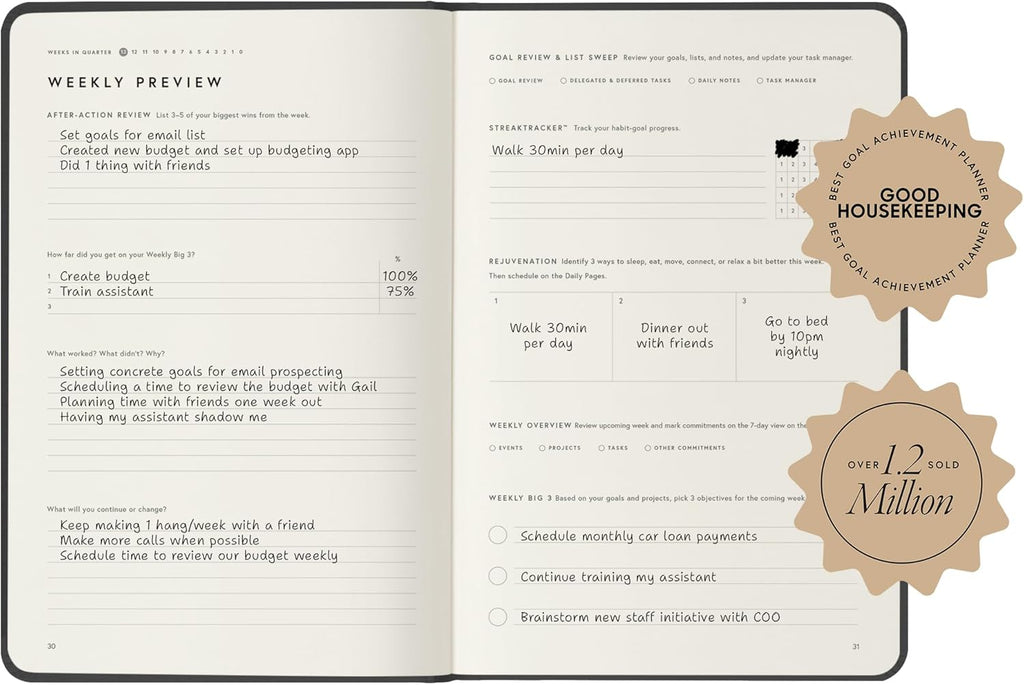 WEEKS IN QUARTER 13 12 11 10 9 8 7 6 5 4 3 2 1 0
WEEKLY PREVIEW
AFTER-ACTION REVIEW List 3–5 of your biggest wins from the week.
Set goals for email list
Created new budget and set up budgeting app
Did 1 thing with friends
How far did you get on your Weekly Big 3?
%
1 Create budget 100%
2 Train assistant 75%
3
What worked? What didn't? Why?
Setting concrete goals for email prospecting
Scheduling a time to review the budget with Gail
Planning time with friends one week out
Having my assistant shadow me
What will you continue or change?
Keep making 1 hang/week with a friend
Make more calls when possible
Schedule time to review our budget weekly
30
GOAL REVIEW & LIST SWEEP Review your goals, lists, and notes, and update your task manager.
GOAL REVIEW DELEGATED & DEFERRED TASKS DAILY NOTES TASK MANAGER
STREAKTRACKER™ Track your habit-goal progress.
Walk 30min per day
3
1 2 3 4
1 2 3
1 2 3
1 2 3
REJUVENATION Identify 3 ways to sleep, eat, move, connect, or relax a bit better this week.
Then schedule on the Daily Pages.
1 2 3
Walk 30min
per day
Dinner out
with friends
Go to bed
by 10pm
nightly
WEEKLY OVERVIEW Review upcoming week and mark commitments on the 7-day view on the
EVENTS PROJECTS TASKS OTHER COMMITMENTS
WEEKLY BIG 3 Based on your goals and projects, pick 3 objectives for the coming week
Schedule monthly car loan payments
Continue training my assistant
Brainstorm new staff initiative with COO
31
BEST GOAL ACHIEVEMENT PLANNER
GOOD
HOUSEKEEPING
BEST GOAL ACHIEVEMENT PLANNER
OVER 1.2 SOLD
Million